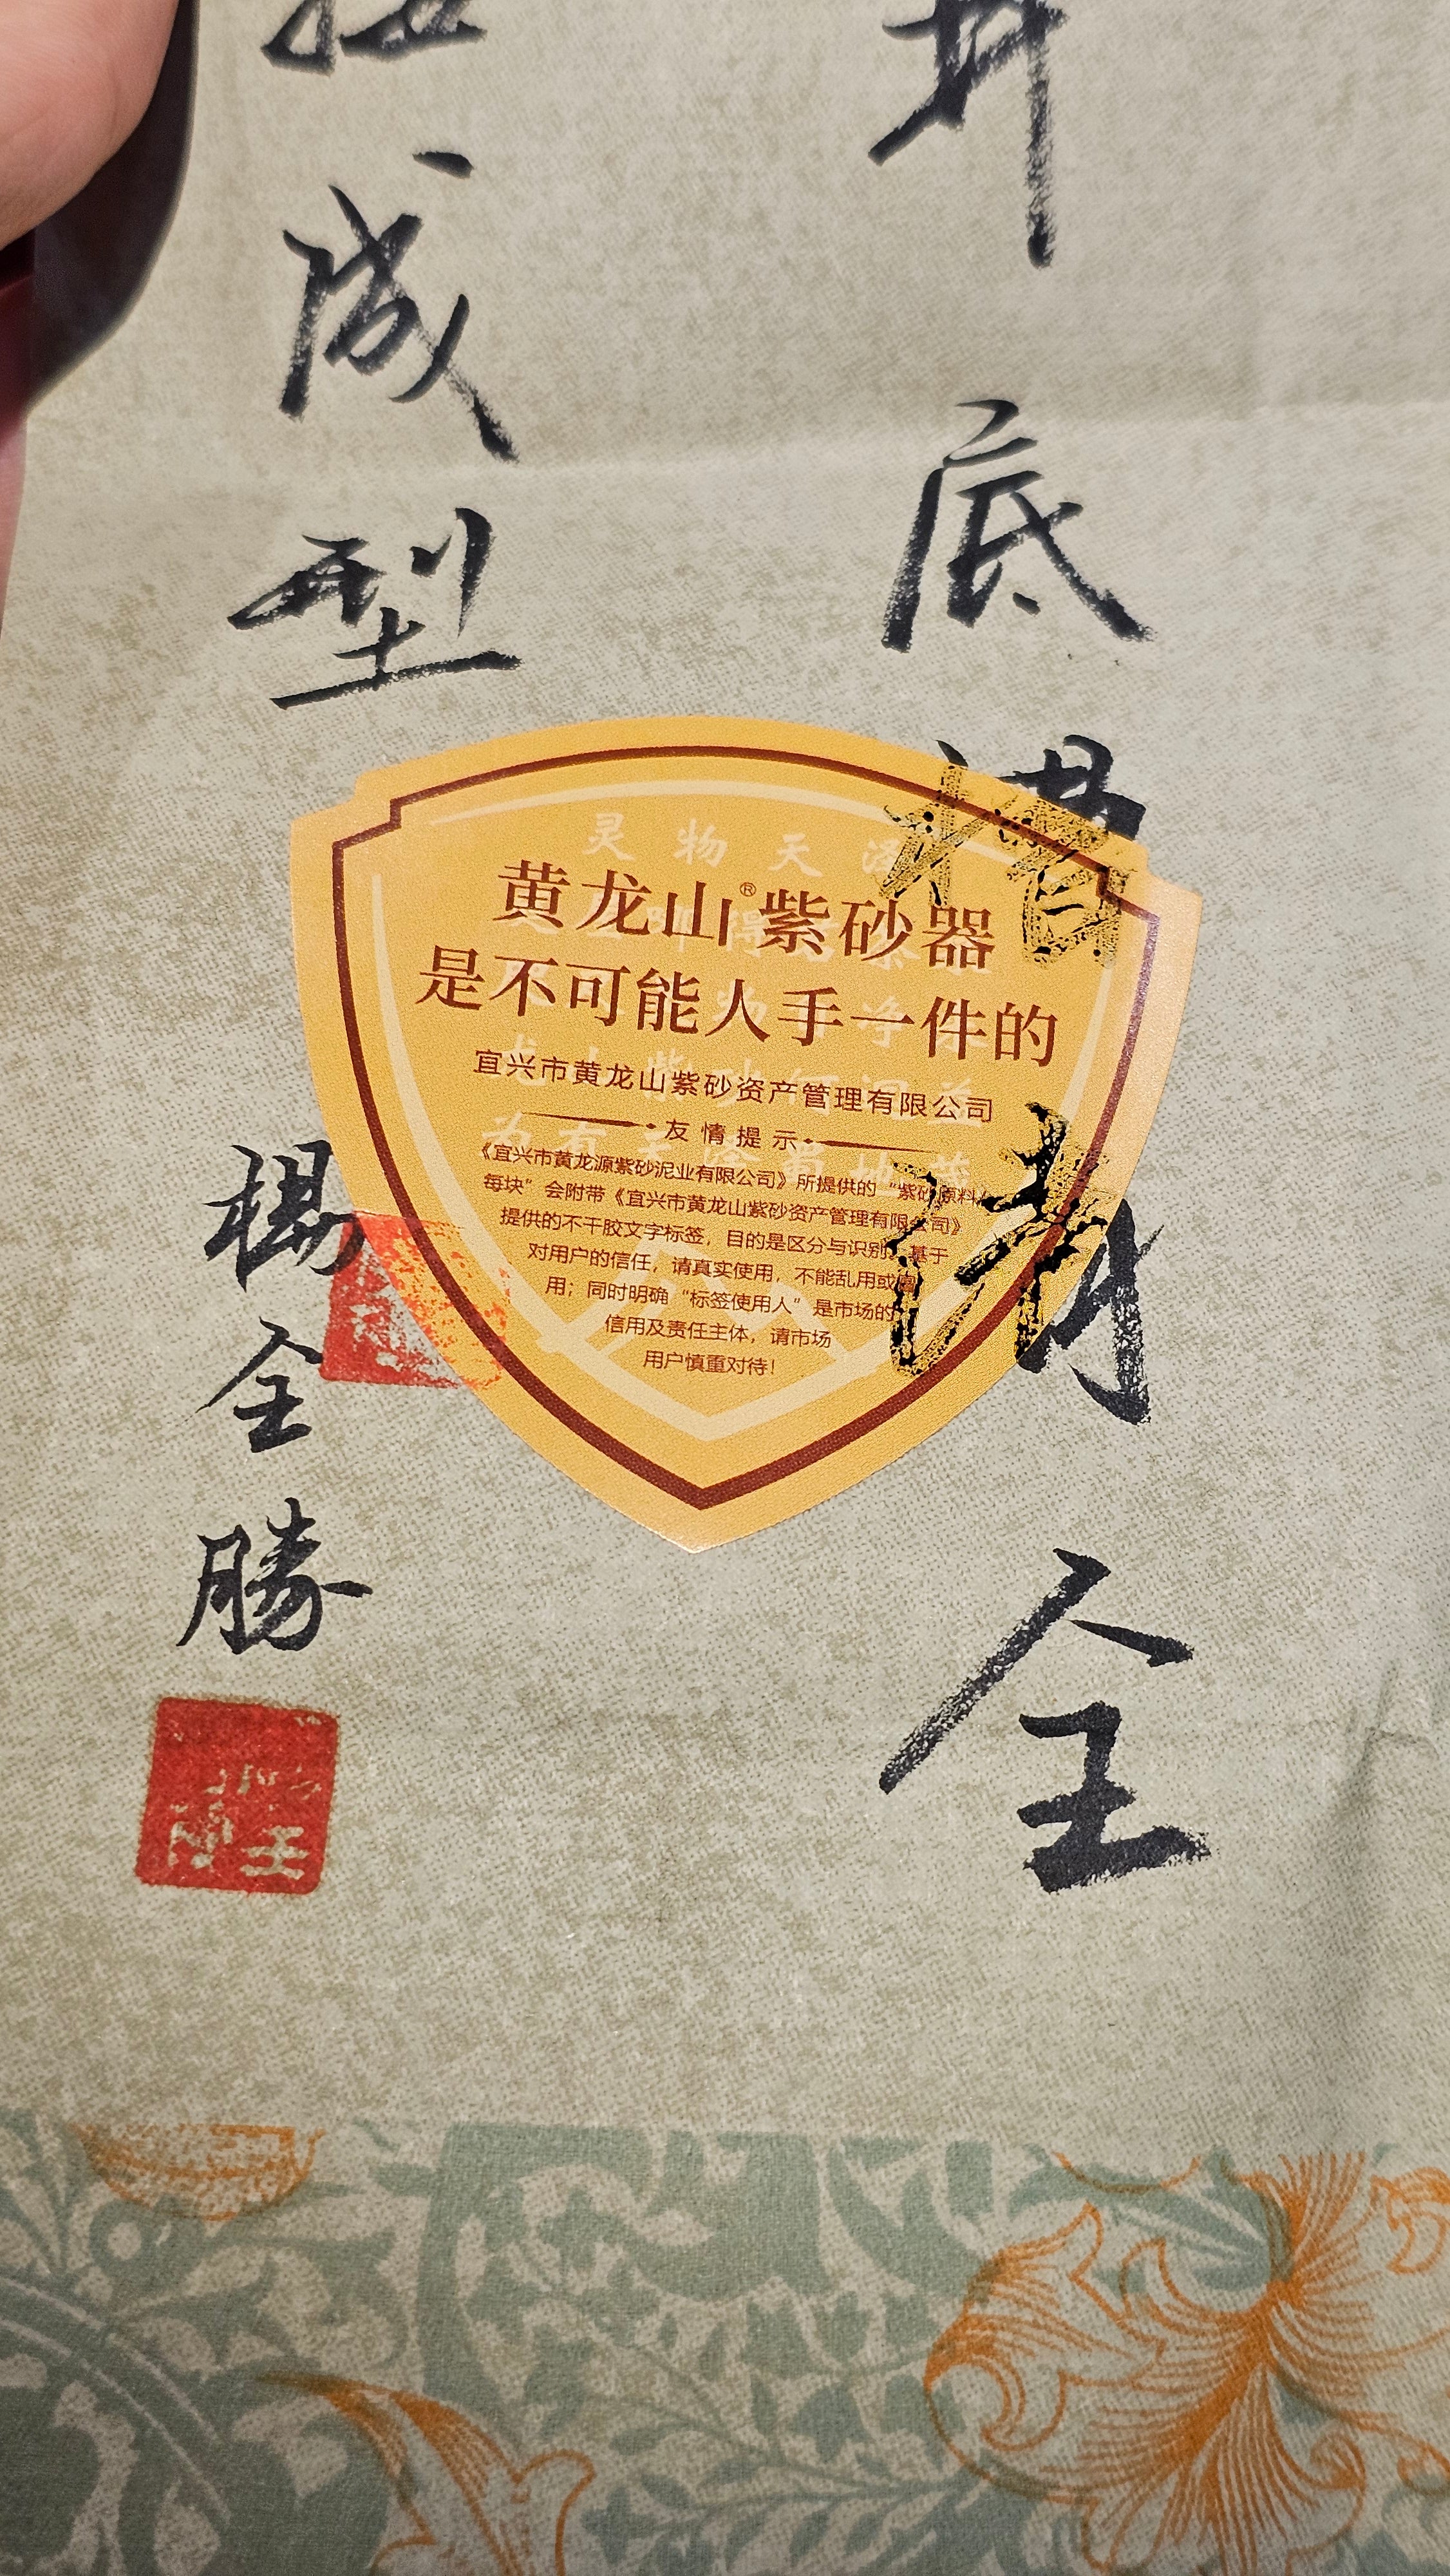 底槽清全
成型
楊全勝
灵物天
黄龙山®紫砂器
是不可能人手一件的
宜兴市黄龙山紫砂资产管理有限公司
友情提示
《宜兴市黄龙源紫砂泥业有限公司》所提供的“紫砂原料/
每块”会附带《宜兴市黄龙山紫砂资产管理有限公司》
提供的不干胶文字标签，目的是区分与识别，基于
对用户的信任，请真实使用，不能乱用或
用；同时明确“标签使用人”是市场的
信用及责任主体，请市场
用户慎重对待！